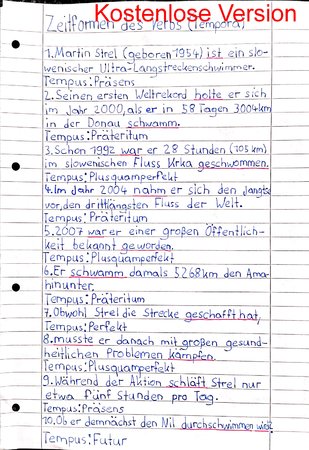 Kostenlose Version
Zeitformen des Verbs (Tempora)
1.Martin Strel (geboren 1954) ist ein slo-
wenischer Ultra-Langstreckenschwimmer.
Tempus:Präsens
2.Seinen ersten Weltrekord holte er sich
im Jahr 2000, als er in 58 Tagen 3004km
in der Donau schwamm.
Tempus:Präteritum
3.Schon 1992 war er 28 Stunden (105 km)
im slowenischen Fluss Krka geschwommen.
Tempus:Plusquamperfekt
4.Im Jahr 2004 nahm er sich den Jangtse
vor, den drittlängsten Fluss der Welt.
Tempus:Präteritum
5.2007 war er einer großen Öffentlich-
keit bekannt geworden.
Tempus:Plusquamperfekt
6.Er schwamm damals 5268km den Ama-
hinunter.
Tempus:Präteritum
7.Obwohl Strel die Strecke geschafft hat,
Tempus:Perfekt
8.musste er danach mit großen gesund-
heitlichen Problemen kämpfen.
Tempus:Plusquamperfekt
9.Während der Aktion schläft Strel nur
etwa fünf Stunden pro Tag.
Tempus:Präsens
10.Ob er demnächst den Nil durchschwimmen
Tempus:Futur